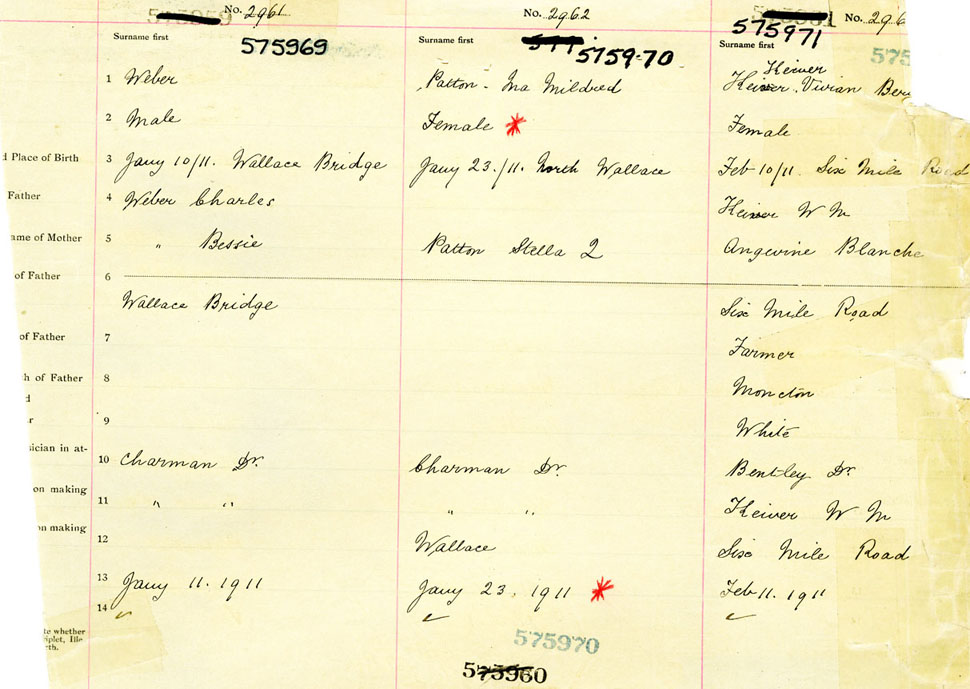 No. 2961
575969
Surname first
1 Weber
2 Male
d Place of Birth
3 Jany 10/11. Wallace Bridge
Father
4 Weber Charles
ame of Mother
5 " Bessie
of Father
6
Wallace Bridge
of Father
7
h of Father
8
d
r
9
sician in at-
10 Charman Dr.
on making
11 " "
on making
12
13 Jany 11. 1911
14
te whether
iplet, Ille
rth.
No. 2962
Surname first
575970
Patton - Ina Mildred
Female *
Jany 23./11. North Wallace
Patton Stella 2
Charman Dr.
" "
Wallace
Jany 23. 1911 *
575970
575960
No. 296
575971
575
Surname first
Keiver
Vivian
Female
Feb 10/11. Six Mile Road
Keiver W M
Angevine Blanche
Six Mile Road
Farmer
Moncton
White
Bentley Dr.
Keiver W M
Six Mile Road
Feb 11. 1911